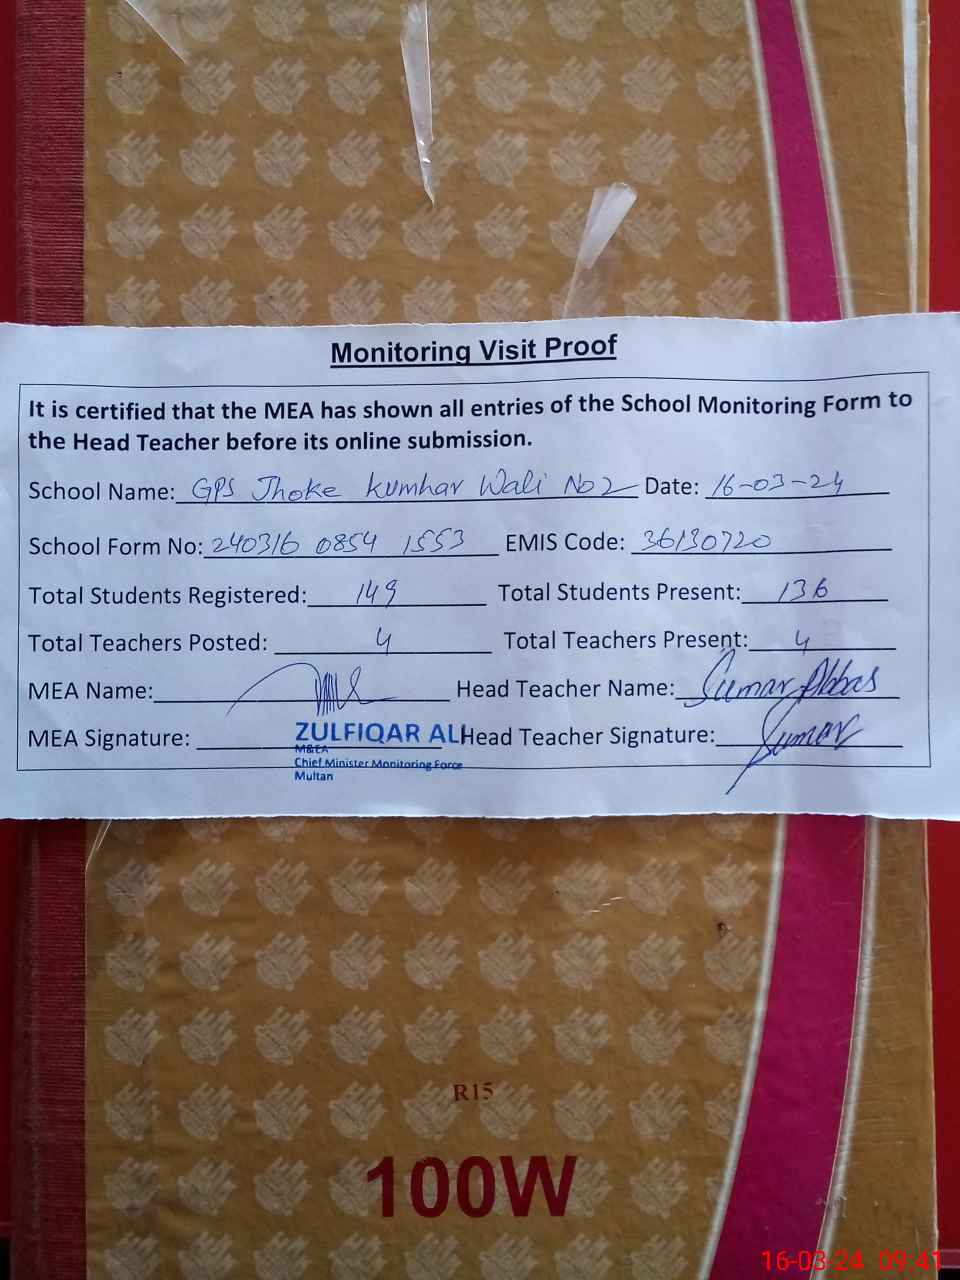 Monitoring Visit Proof
It is certified that the MEA has shown all entries of the School Monitoring Form to
the Head Teacher before its online submission.
School Name: GPS Jhoke Kumhar Wali No 2 Date: 16-03-24
School Form No: 240316 0854 1553 EMIS Code: 36130720
Total Students Registered: 149 Total Students Present: 136
Total Teachers Posted: 4 Total Teachers Present: 4
MEA Name: Head Teacher Name: Sumar Abbas
MEA Signature: ZULFIQAR ALI Head Teacher Signature: Sumar
M&EA
Chief Minister Monitoring Force
Multan
R15
100W
16-03-24 09:41